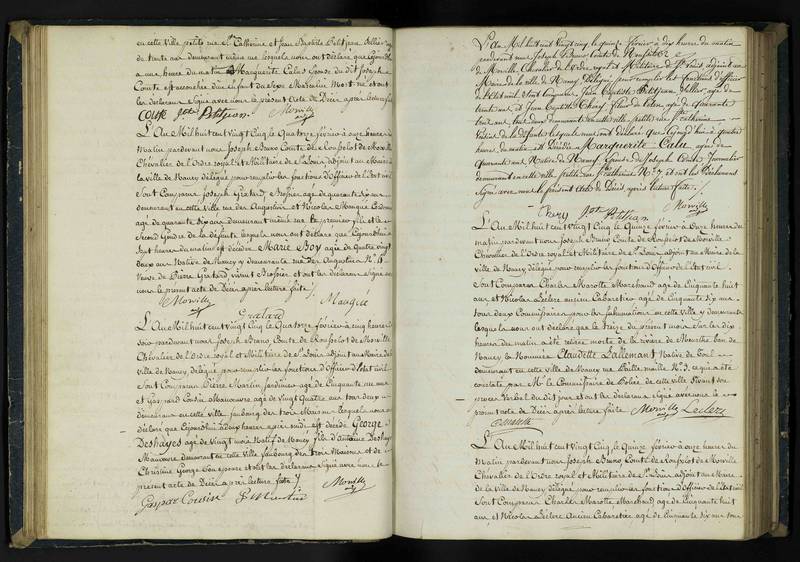 en cette Ville petite rue Ste Catherine et Jean Baptiste Petitjean Sellier agé
de trente ans demeurant même rue lesquels nous ont déclaré que Cejourd'hui
à une heure du matin Marguerite Calus Epouse du dit Joseph
Conte est accouchée d'un Enfant du Sexe Masculin Mort né et ont
les déclarans Signé avec nous le présent Acte de Décès après lecture faite
Conte Jste Petitjean Morville
L'An Mil huit cent Vingt Cinq le Quatorze février à onze heures du
Matin pardevant nous Joseph Bruno Comte de Rousselot de Morville
Chevalier de l'Ordre royal et Militaire de St Louis adjoint au Maire de
la Ville de Nancy délégué pour remplir les fonctions d'Officier de l'Etat civil
Sont Comparus Joseph Gratard, Brossier agé de quarante six ans
demeurant en cette Ville rue des Augustins et Nicolas Mangée
agé de quarante six ans demeurant même rue le premier fils et le
Second Gendre de la défunte lesquels nous ont déclaré que Cejourd'hui à
Sept heures du matin est décédée Marie Boy agée de Quatre vingt
deux ans Native de Nancy y demeurante rue des Augustins No
Veuve de Pierre Gratard vivant Brossier et ont les déclarans Signé avec
nous le présent acte de Décès après lecture faite
Morville Mangée
Gratard
L'An Mil huit cent Vingt Cinq le Quatorze février à cinq heures du
Soir pardevant nous Joseph Bruno Comte de Rousselot de Morville
Chevalier de l'Ordre royal et Militaire de St Louis adjoint au Maire de la
Ville de Nancy délégué pour remplir les fonctions d'Officier de l'état civil
Sont Comparus Pierre Martin Jardinier agé de Cinquante un ans
et Gaspard Cousin Manœuvre agé de vingt Quatre ans tous deux
demeurans en cette ville faubourg des trois Maisons lesquels nous ont
déclaré que Cejourd'hui à Deux heures après midi est décédé George
Deshayes agé de Vingt mois Natif de Nancy fils d'Antoine Deshayes
Manœuvre demeurant en cette Ville faubourg des trois Maisons et de
Christine George Son épouse et ont les déclarans Signé avec nous le
présent acte de Décès après lecture faite
Gaspar Cousin P. Martin Morville
L'An Mil huit cent vingt cinq, le quinze février à dix heures du matin
pardevant nous Joseph Bruno Comte de Rousselot
de Morville, Chevalier de l'ordre royal et Militaire de St Louis, adjoint au
Maire de la ville de Nancy, Délégué pour remplir les fonctions d'officier
de l'Etat civil, Sont Comparus, Jean Baptiste Petitjean, Sellier, agé de
trente ans, et Jean Baptiste Thiery, fileur de coton, agé de quarante
ans, tous deux demeurans en cette ville, petite rue Ste Catherine
Voisins de la Défunte, lesquels nous ont déclaré que Cejourd'hui à quatre
heures du matin est Décédée Marguerite Calu agée de
quarante ans, Native de Epouse de Joseph Conte, Journalier
demeurant en cette ville, petite rue Ste Catherine No 7 et ont les Déclarans
Signé avec nous le présent Acte de Décès, après lecture faite.
Thiery Jste Petitjean Morville
L'An Mil huit cent vingt Cinq le Quinze février à Onze heures du
matin pardevant nous Joseph Bruno Comte de Rousselot de Morville
Chevalier de l'Ordre royal et Militaire de St Louis adjoint au Maire de la
ville de Nancy délégué pour remplir les fonctions d'Officier de l'Etat civil
Sont Comparus Charles Marotte Marchand agé de Cinquante huit
ans et Nicolas Leclerc ancien Cabaretier agé de Cinquante six ans
tous deux Commissaires pour les inhumations en cette ville y demeurants
lesquels nous ont déclaré que le treize du présent mois Sur les dix
heures du matin a été retirée morte de la rivière de Meurthe ban de
Nancy la Nommée Claudette Lallemant Native de Toul
demeurant en cette Ville de Nancy rue Paille maille No 3, ce qui a été
constaté par Mr le Commissaire de Police de cette ville Suivant son
procès Verbal du dit jour et ont les déclarans Signé avec nous le
présent acte de Décès après lecture faite Morville Leclerc
Marotte
L'An Mil huit cent vingt Cinq le Quinze février à onze heures du
Matin pardevant nous Joseph Bruno Comte de Rousselot de Morville
Chevalier de l'Ordre royal et Militaire de St Louis adjoint au Maire
de la ville de Nancy délégué pour remplir les fonctions d'Officier de l'Etat civil
Sont Comparus Charles Marotte Marchand agé de Cinquante huit
ans, et Nicolas Leclerc Ancien Cabaretier agé de Cinquante six ans tous